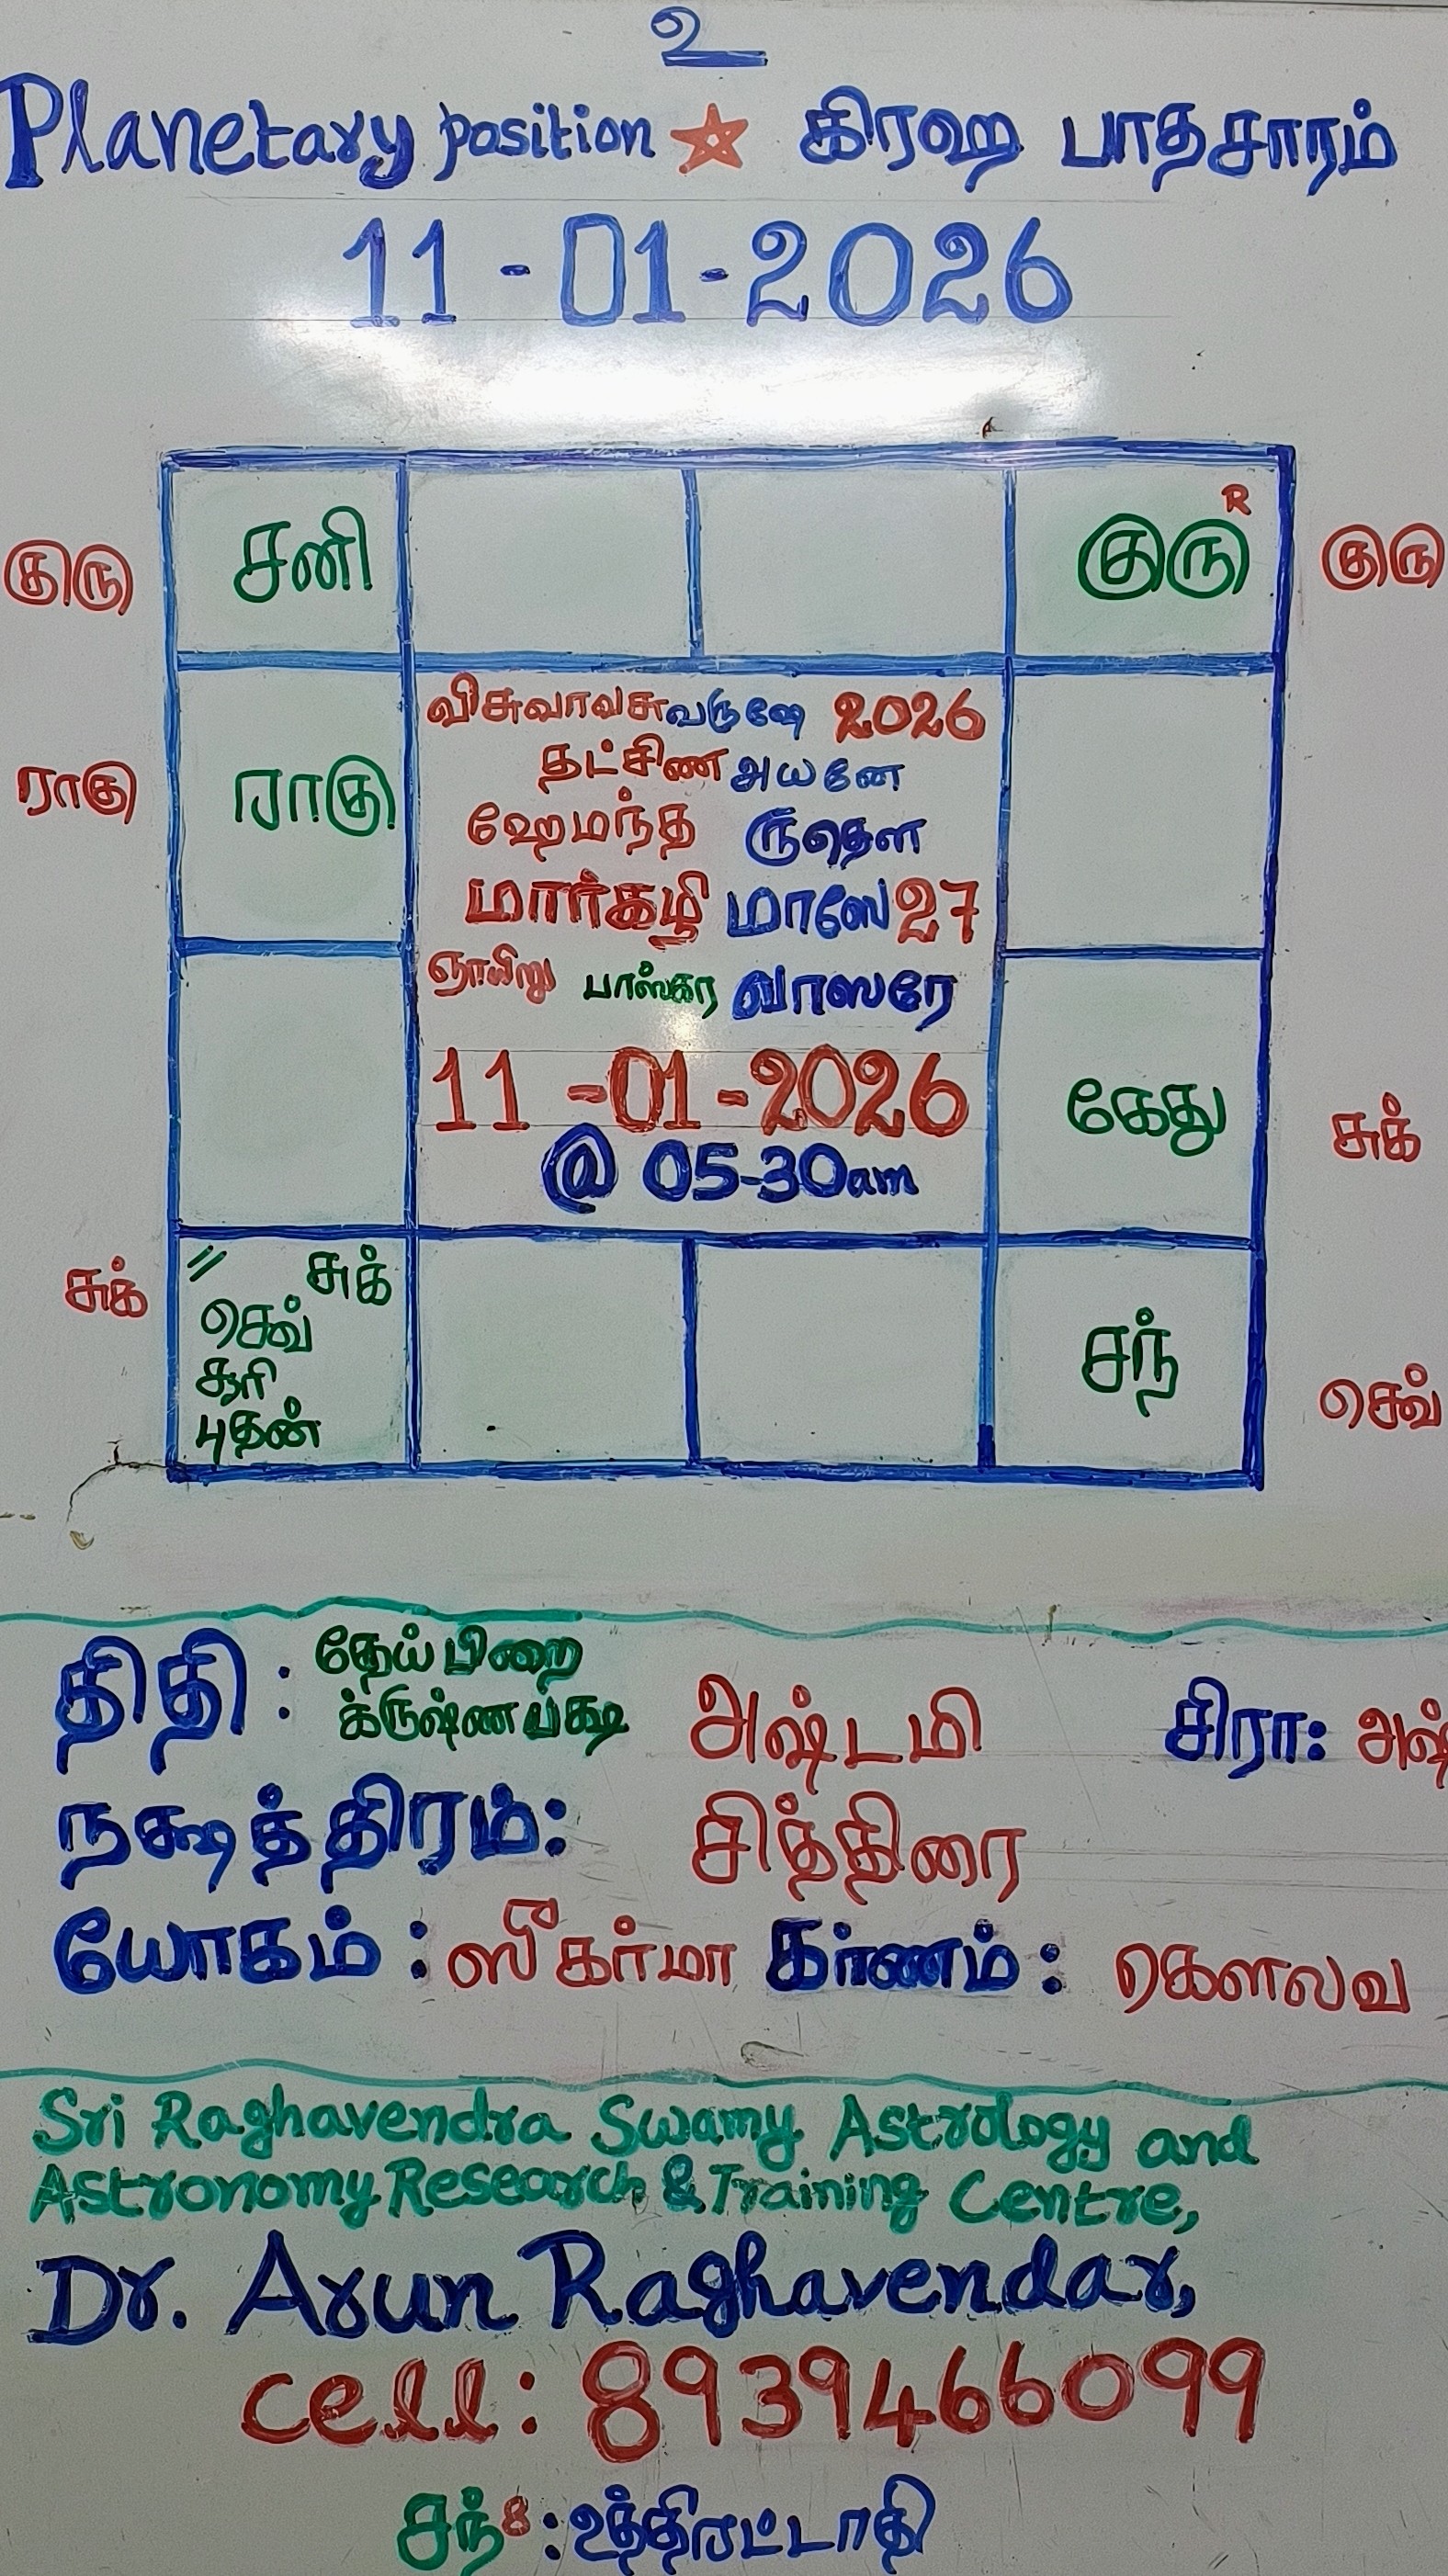 உ
Planetary position ★ கிரஹ பாதசாரம்
11-01-2026
R
குரு சனி குரு குரு
விசுவாவசு வருஷே 2026
தட்சிண அயனே
ராகு ராகு ஹேமந்த ருதௌ
மார்கழி மாஸே 27
ஞாயிறு பாஸ்கர வாஸரே
11-01-2026 கேது சுக்
@ 05-30am
சுக் // சுக்
செவ் சந் செவ்
சூரி
புதன்
திதி: தேய் பிறை
க்ருஷ்ண பக்ஷ அஷ்டமி சிரா: அஷ்
நக்ஷத்திரம்: சித்திரை
யோகம்: ஸீகர்மா கர்ணம்: கௌலவ
Sri Raghavendra Swamy Astrology and
Astronomy Research & Training Centre,
Dr. Arun Raghavendar,
cell: 8939466099
சந்8: உத்திரட்டாதி